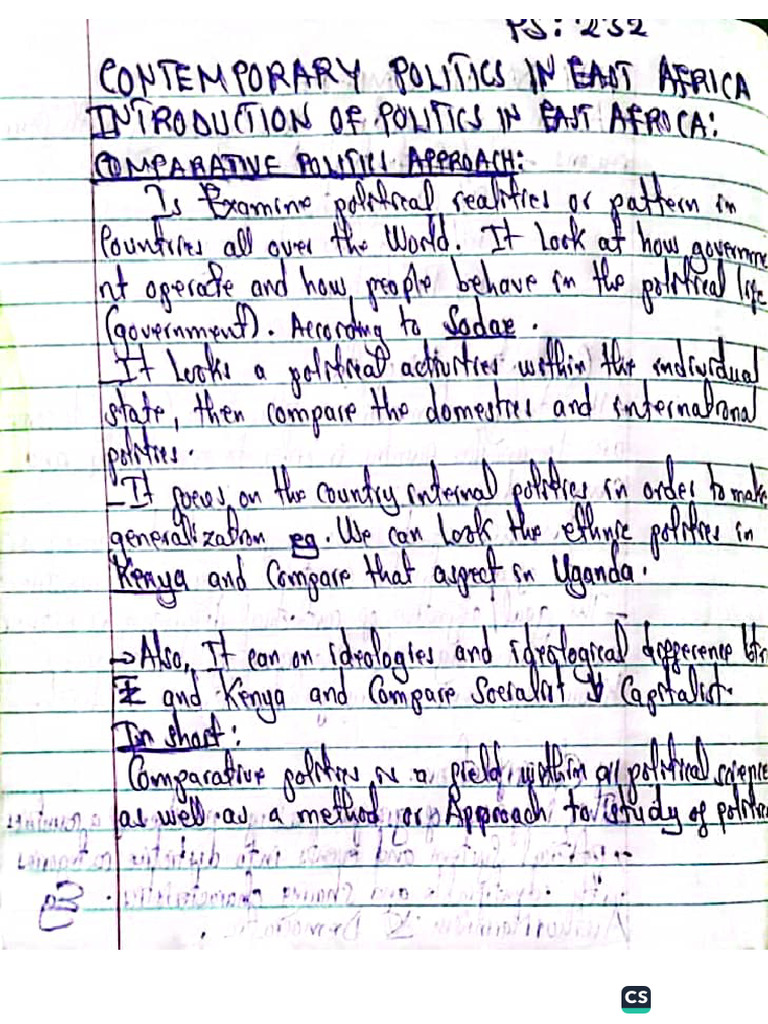 PS: 232
CONTEMPORARY POLITICS IN EAST AFRICA
INTRODUCTION OF POLITICS IN EAST AFRICA:
COMPARATIVE POLITICS APPROACH:
Is Examine political realities or pattern in
Countries all over the World. It Look at how governme
nt operate and how people behave in the political life
(government). According to Sodar.
-It Looks a political activities within the individual
state, then compare the domestics and international
politics.
-It focus on the country internal politics in order to make
generalization eg. We can Look the ethnic politics in
Kenya and Compare that aspect in Uganda.
→ Also, It can on ideologies and ideological difference btn
and Kenya and Compare Socialist Capitalist.
In short:
Comparative politics is a field within of political science
as well as a method or Approach to study of politics
CS